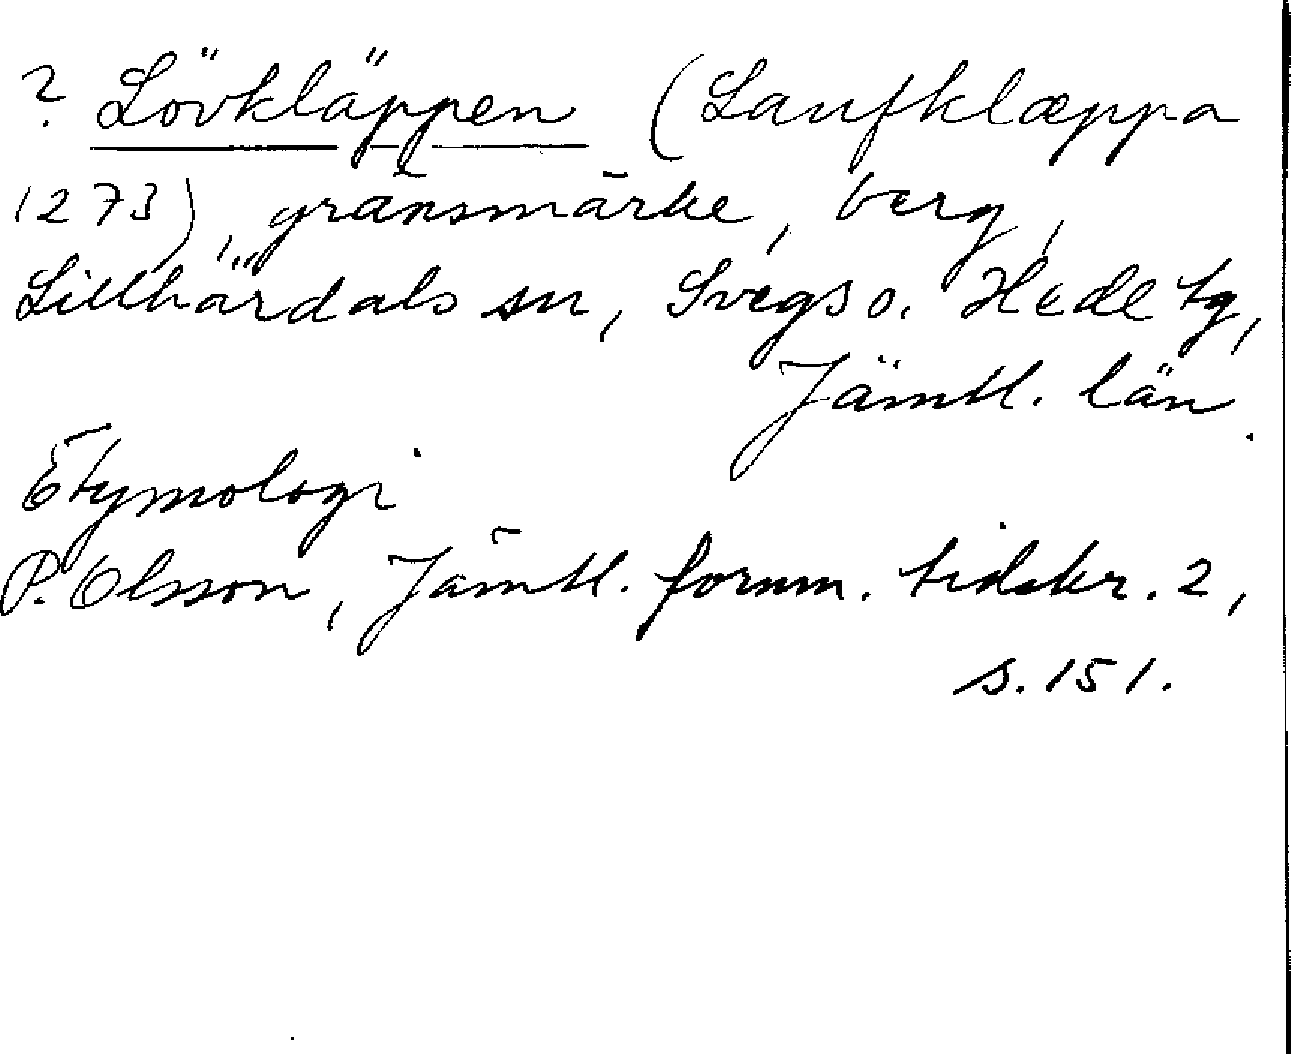 ? Lövkläppen (Laufklæppa
1273), gränsmärke, berg,
Lillhärdals sn, Svegs o. Hede tg,
Jämtl. län.
Etymologi
P. Olsson, Jämtl. fornm. tidskr. 2,
s. 151.